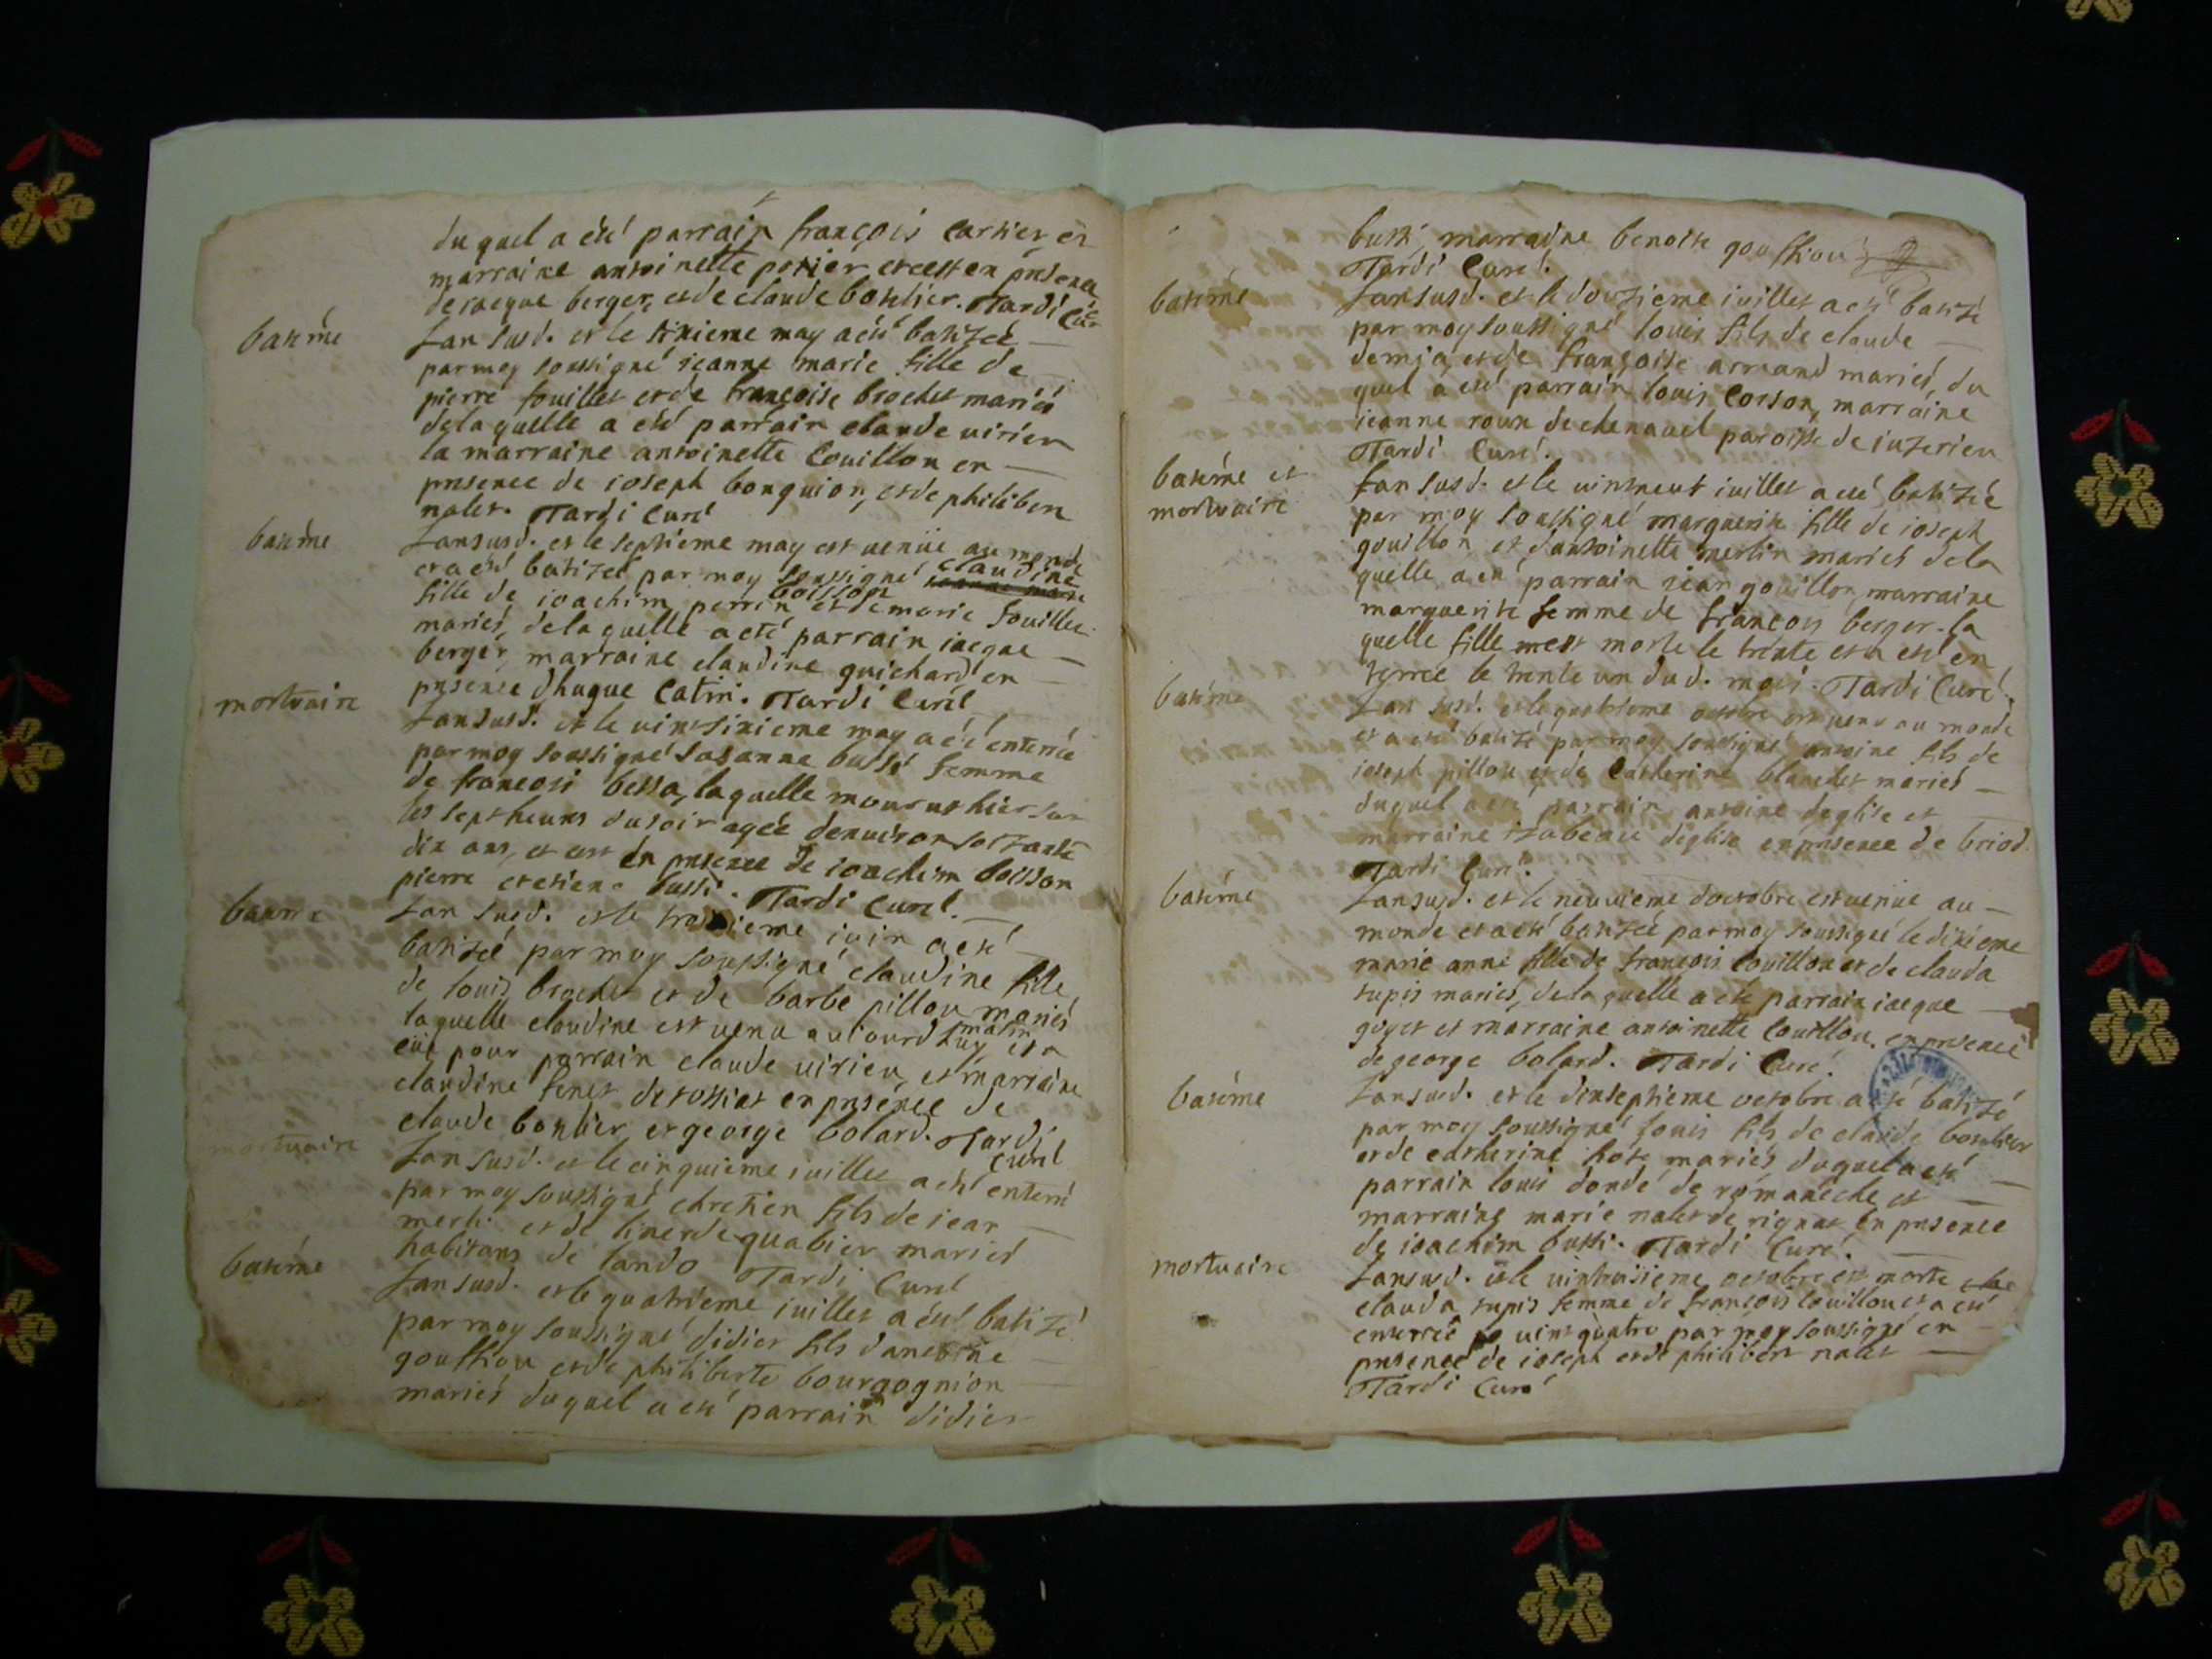 duquel a eté parrain françois Cartier, et
marraine antoinette potier, et cest en presence
de iacque berger, et de claude bouhier. Tardi Curé
batéme
Lan susd. et le sixieme may a eté batizée
par moy soussigné ieanne marie fille de
pierre fouillet et de françoise brochet mariés
de laquelle a eté parrain claude virieu
la marraine antoinette Couillou en
presence de ioseph bonguion, et de philibert
nalet. Tardi Curé
batéme
Lan susd. et le septieme may est venüe au monde
et a eté batizeé par moy soussigné claudine
fille de ioachim perrin boisson et de marie fouillet
mariés, de laquelle a eté parrain iacque
berger, marraine claudine guichard en
presence d'hugue Catin. Tardi Curé
mortuaire
Lan susd. et le vintsixieme may a eté enterrée
par moy soussigné susanne bussi femme
de françois bessa, laquelle mourut hier sur
les sept heures du soir ageé denviron soizante
dix ans, et est en presence de ioachim boisson
pierre et etiene bussi. Tardi Curé.
batéme
Lan susd. et le troisieme iuin a eté
batizeé par moy soussigné claudine fille
de louis brochet et de barbe pillou mariés
laquelle claudine est venu auiourdhuy matin et a
eüe pour parrain claude virieu, et marraine
claudine fenet de tossiat en presence de
claude bouhier et george bolard. Tardi
Curé
mortuaire
Lan susd. et le cinquieme iuillet a eté enterré
par moy soussigné chretien fils de iean
merli et de quabier mariés
habitans de lando Tardi Curé
batéme
Lan susd. et le quatrieme iuillet a eté batizé
par moy soussigné didier fils dantoine
gouthiou et de philiberte bourgognion
mariés duquel a eté parrain didier
bussi, marraine benoite gouthiou
Tardi Curé.
batéme
Lan susd. et le douzieme iuillet a eté batizé
par moy soussigné louis fils de claude
demia et de françoise arreand mariés, du
quel a eté parrain louis Corson, marraine
ieanne roux de chenavel paroisse de iuzerieu
Tardi Curé.
batéme et
mortuaire
Lan susd. et le vintneuf iuillet a eté batizeé
par moy soussigné marguerite fille de ioseph
gouillon et dantoinette merlin mariés de la
quelle a eté parrain iean gouillon, marraine
marguerite femme de françois berger. la
quelle fille est morte le trente et a eté en
terreé le trente un dud. mois. Tardi Curé.
batéme
Lan susd. et le quatrieme octobre est venu au monde
et a eté batizé par moy soussigné antoine fils de
ioseph pillou et de Catherine blanchet mariés
duquel a eté parrain antoine deglise et
marraine izabeau deglise en presence de briod.
Tardi Curé.
batéme
Lan susd. et le neuvieme doctobre est venüe au
monde et a eté batizeé par moy soussigné le dixieme
marie anne fille de françois Couillou et de clauda
tupis mariés, de laquelle a eté parrain iacque
goyet et marraine antoinette Couillou, en presence
de george bolard. Tardi Curé.
batéme
Lan susd. et le dixseptieme octobre a eté batizé
par moy soussigné louis fils de claude bouhier
et de catherine hote mariés duquel a eté
parrain louis dondé de romaneche et
marraine marie nalet de rignat en presence
de ioachim bussi. Tardi Curé.
mortuaire
Lan susd. et le vintroisieme octobre est morte
clauda tupis femme de françois Couillou et a eté
enterreé le vintquatre par moy soussigné en
presence de ioseph et de philibert nalet
Tardi Curé